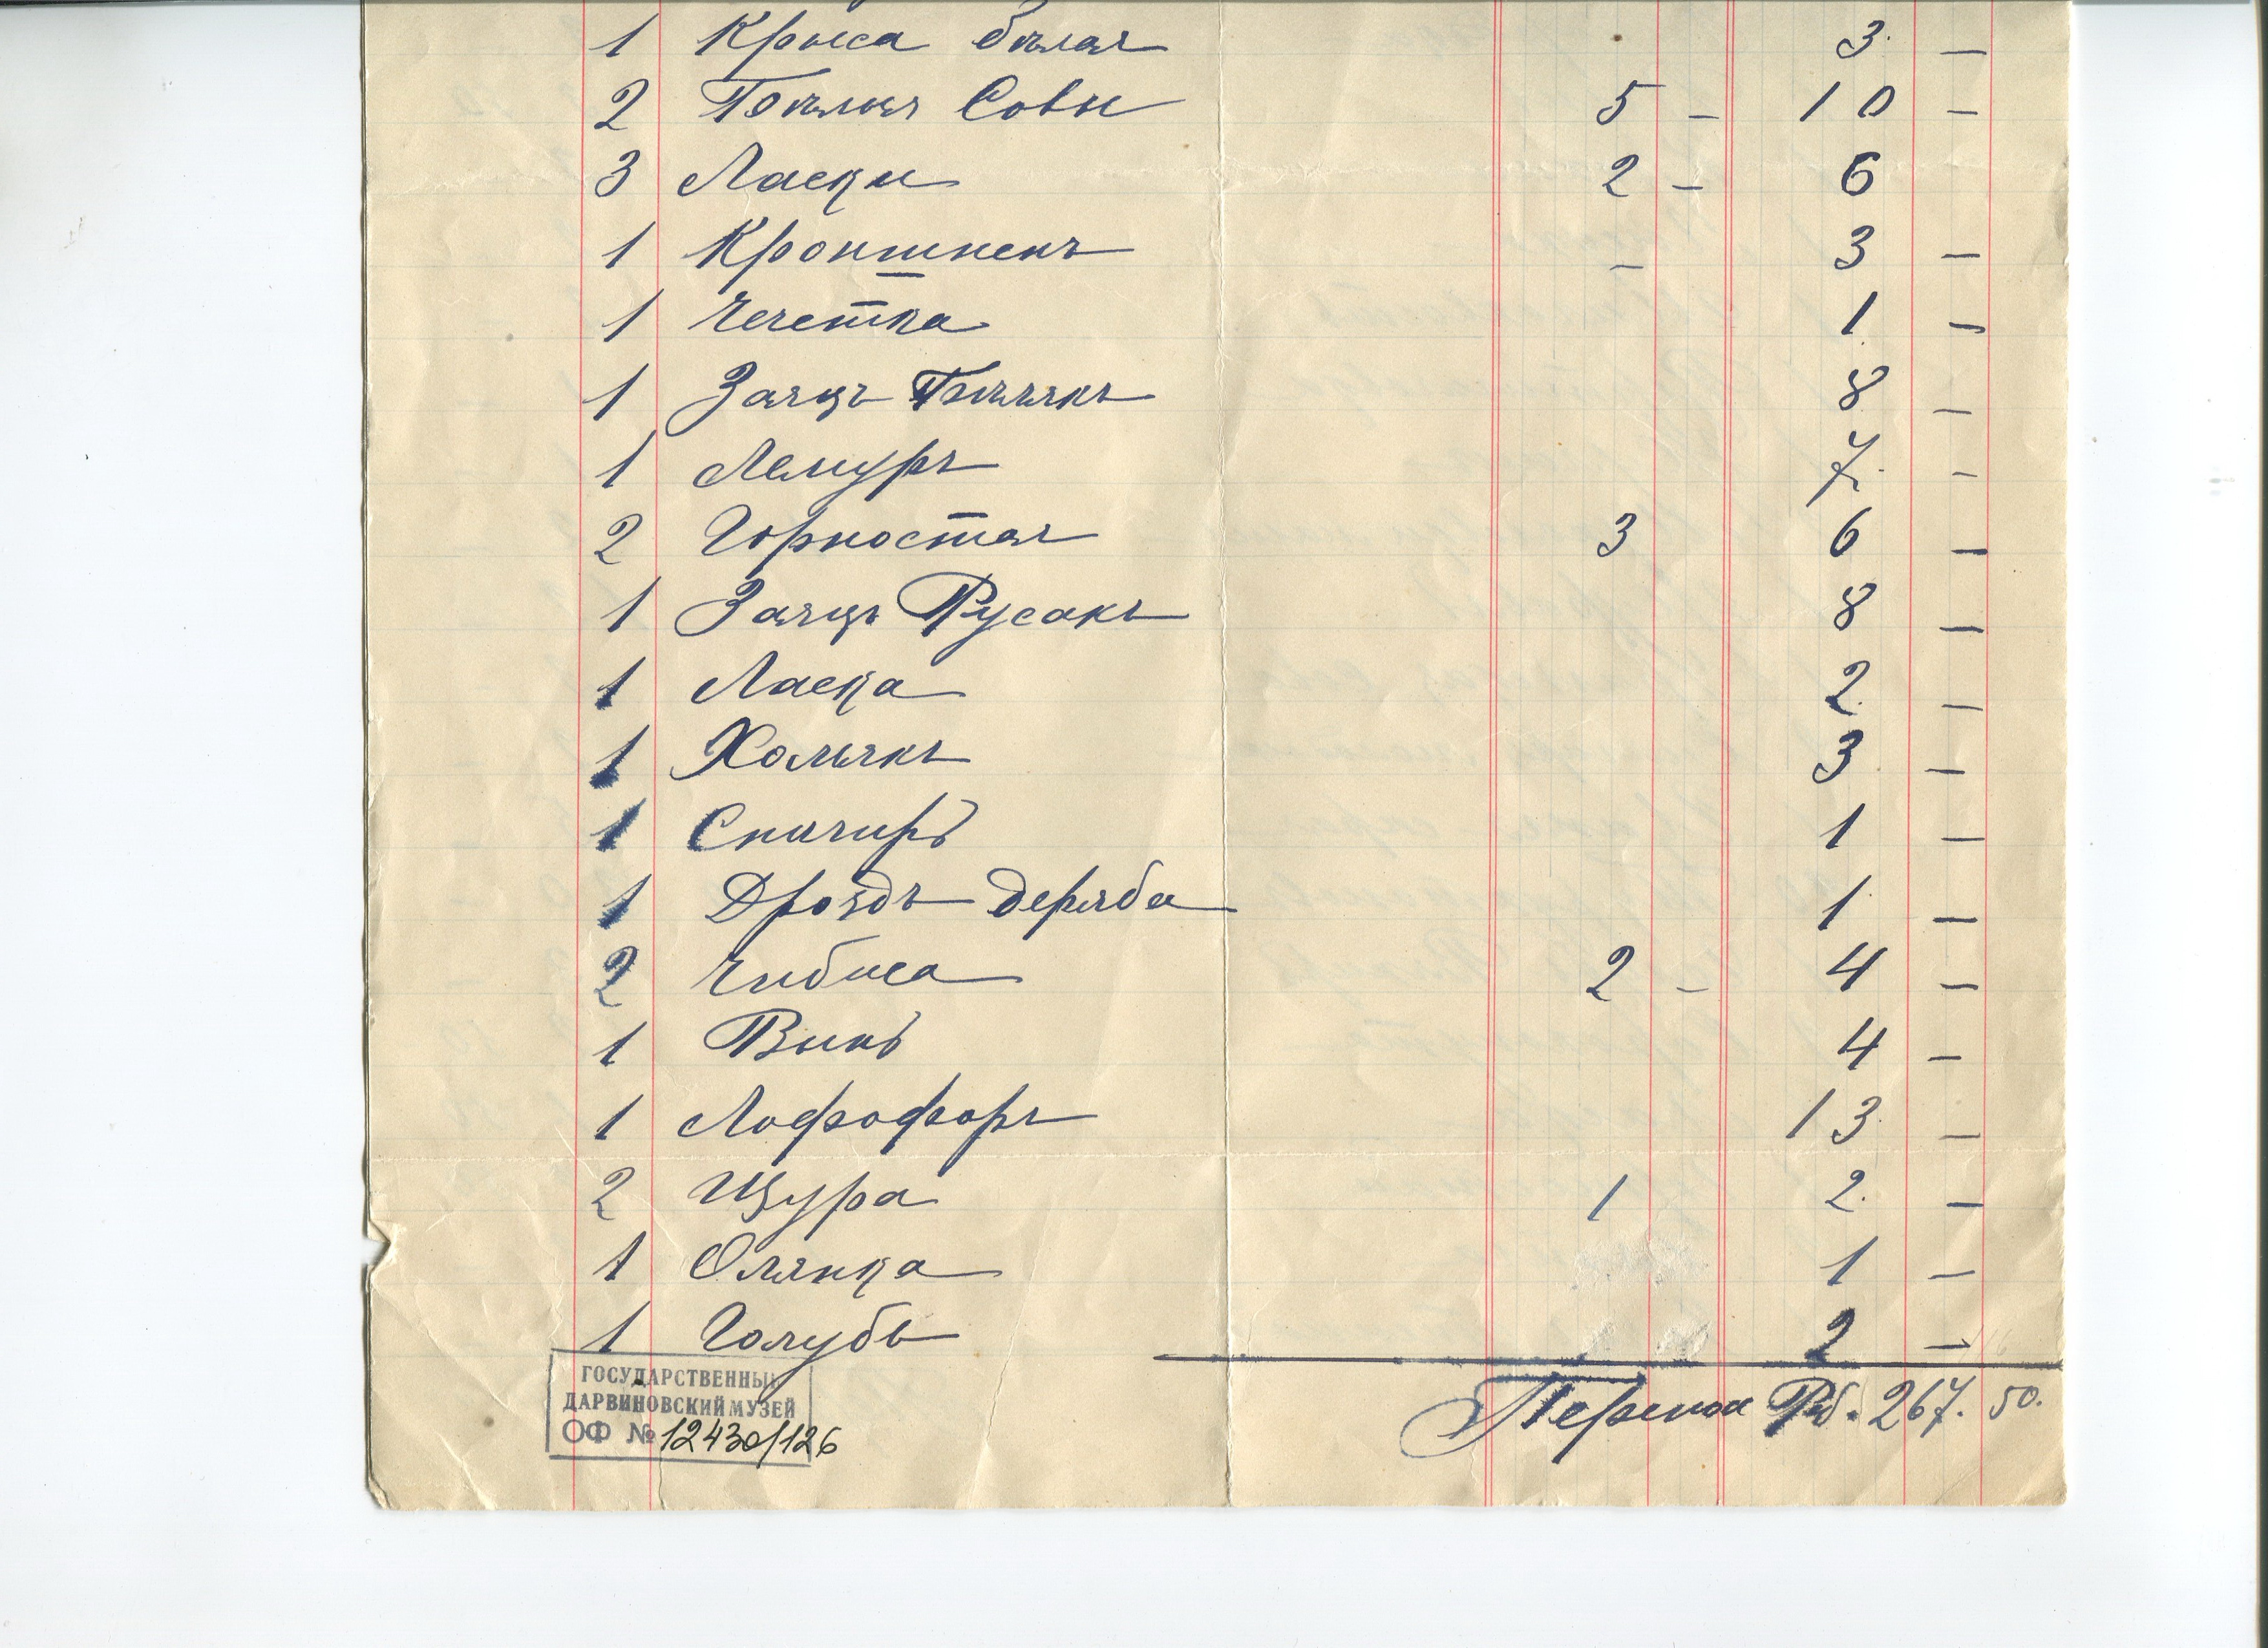 1 Крыса бѣлая 3. —
2 Бѣлыя Совы 5 — 10 —
3 Ласки 2 — 6
1 Кроншнепъ — 3 —
1 Чечетка 1 —
1 Заяцъ Бѣлякъ 8 —
1 Лемуръ 7. —
2 Горностая 3 6 —
1 Заяцъ Русакъ 8 —
1 Ласка 2. —
1 Хомякъ 3 —
1 Снигирь 1 —
1 Дроздъ деряба 1 —
2 Чибиса 2 — 4 —
1 4 —
1 Лофофоръ 13. —
2 Щура 1 2. —
1 Олянка 1 —
1 Голубь 2 —
Рб. 267. 50.
ГОСУДАРСТВЕННЫЙ
ДАРВИНОВСКИЙ МУЗЕЙ
ОФ № 12430/126